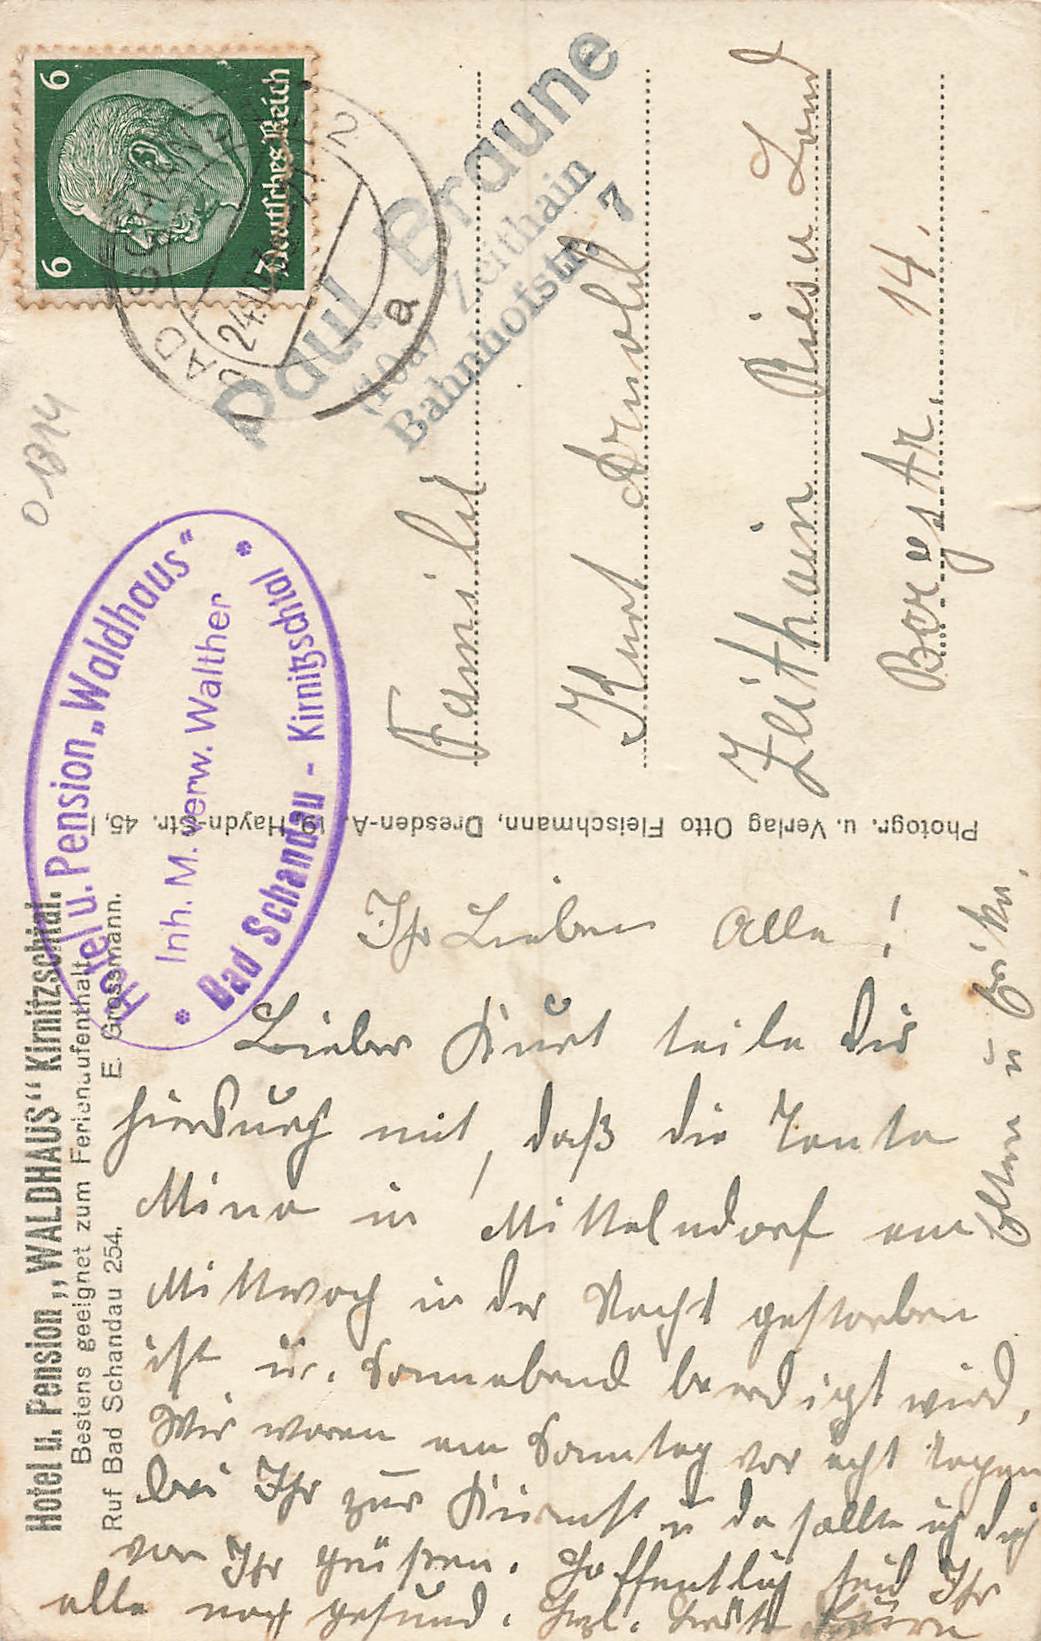 6 6
Deutsches Reich
BAD SCHANDAU 2
a
Paul Braune
(10a) Zeithain
Bahnhofstr. 7
Familie
Kurt Arnold
Zeithain Riesa Land
Bergstr. 14.
Hotel u. Pension „Waldhaus"
Inh. M. verw. Walther
* Bad Schandau - Kirnitzschtal *
Hotel u. Pension „WALDHAUS" Kirnitzschtal.
Bestens geeignet zum Ferienaufenthalt
Ruf Bad Schandau 254. E. Grossmann.
Photogr. u. Verlag Otto Fleischmann, Dresden-A. 19, Haydn-Str. 45, I
Ihr Lieben Alle!
Lieber Kurt teile Dir
hierdurch mit, daß die Tante
Mina in Mittelndorf am
Mittwoch in der Nacht gestorben
ist u. Sonnabend beerdigt wird,
Wir waren am Sonntag vor acht tagen
bei Ihr zur u da sollte ich dich
von Ihr grüßen. Hoffentlich seid Ihr
alle noch gesund. Hzl. Grüße
Eltern u